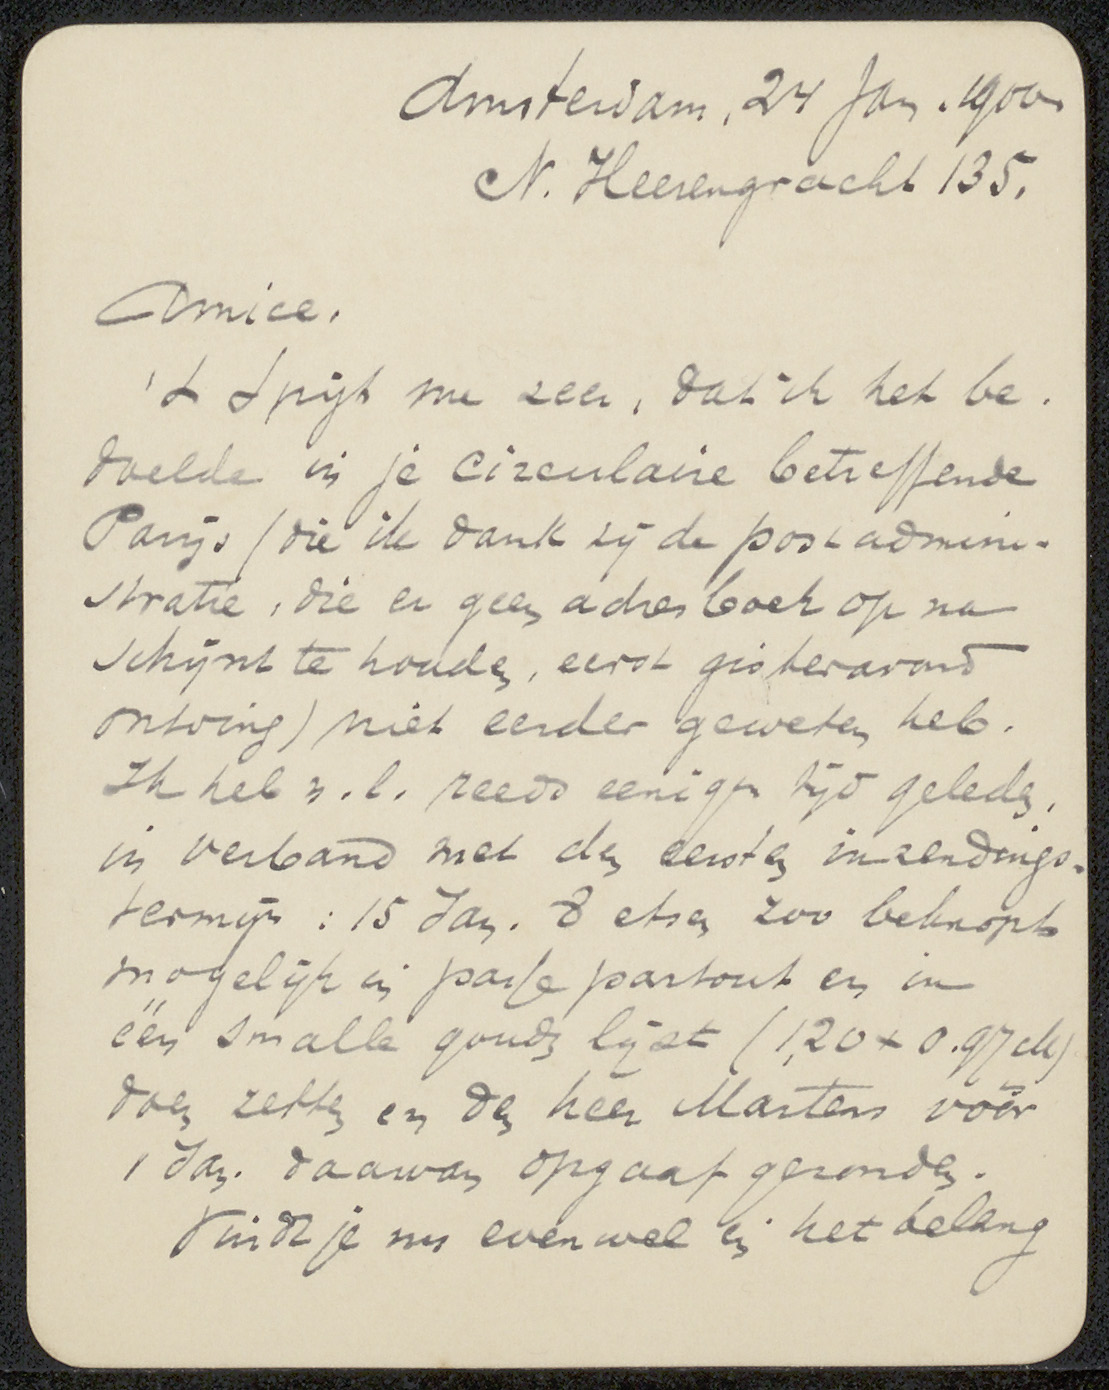 Amsterdam, 24 Jan. 1900
N. Heerengracht 135.
Amice,
't Spijt me zeer, dat ik het be-
doelde in je circulaire betreffende
Parijs (die ik dank zij de postadmini-
stratie, die er geen adresboek op na
schijnt te houden, eerst gisteravond
ontving) niet eerder geweten heb.
Ik heb n.l. reeds eenigen tijd geleden,
in verband met den eersten inzendings-
termijn : 15 Jan. 8 etsen zoo beknopt
mogelijk in passe partout en in
één smalle gouden lijst (1,20 x 0.97 cM)
doen zetten en den heer Martens vóór
1 Jan. daarvan opgaaf gezonden.
Vindt je nu evenwel in het belang